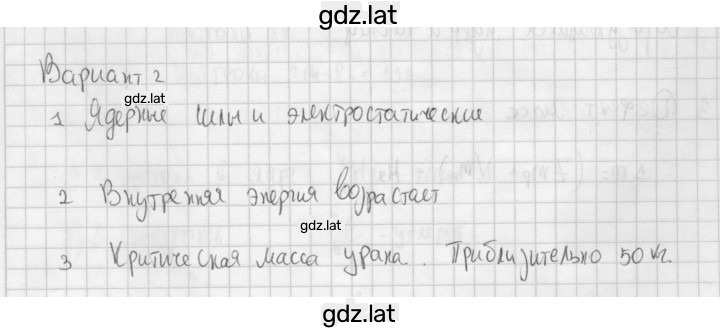 gdz.lat
Вариант 2
gdz.lat
1 Ядерные силы и электростатические
2 Внутренняя энергия возрастает
gdz.lat
3 Критическая масса урана. Приблизительно 50 кг.
gdz.lat